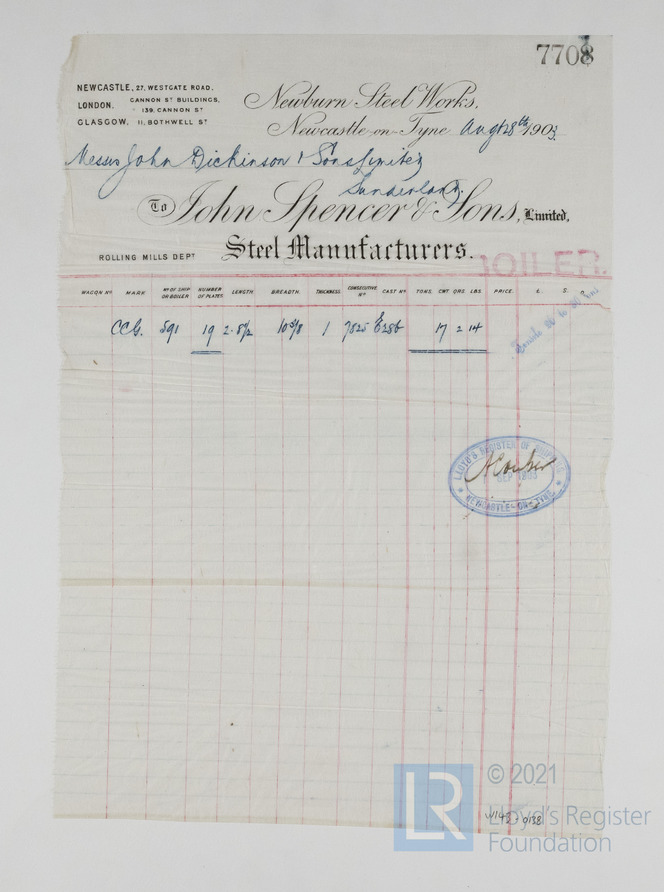 7708
NEWCASTLE, 27, WESTGATE ROAD.
LONDON. CANNON ST BUILDINGS,
139, CANNON ST
GLASGOW, 11, BOTHWELL ST
Newburn Steel Works,
Newcastle-on-Tyne Augt 28th 1903
Messrs John Dickinson & Sons Limited
Sunderland.
To John Spencer & Sons, Limited,
Steel Manufacturers.
ROLLING MILLS DEPT
BOILER.
WAGON No MARK No OF SHIP OR BOILER NUMBER OF PLATES LENGTH BREADTH. THICKNESS CONSECUTIVE No CAST No TONS. CWT QRS. LBS. PRICE. £. S. D.
CCG. 591 19 2-8½ 10 5/8 1 7025 E286 17 2 14
LLOYD'S REGISTER OF
SEP 1903
NEWCASTLE-ON-TYNE
LR
© 2021
Lloyd's Register
Foundation
W143-0138